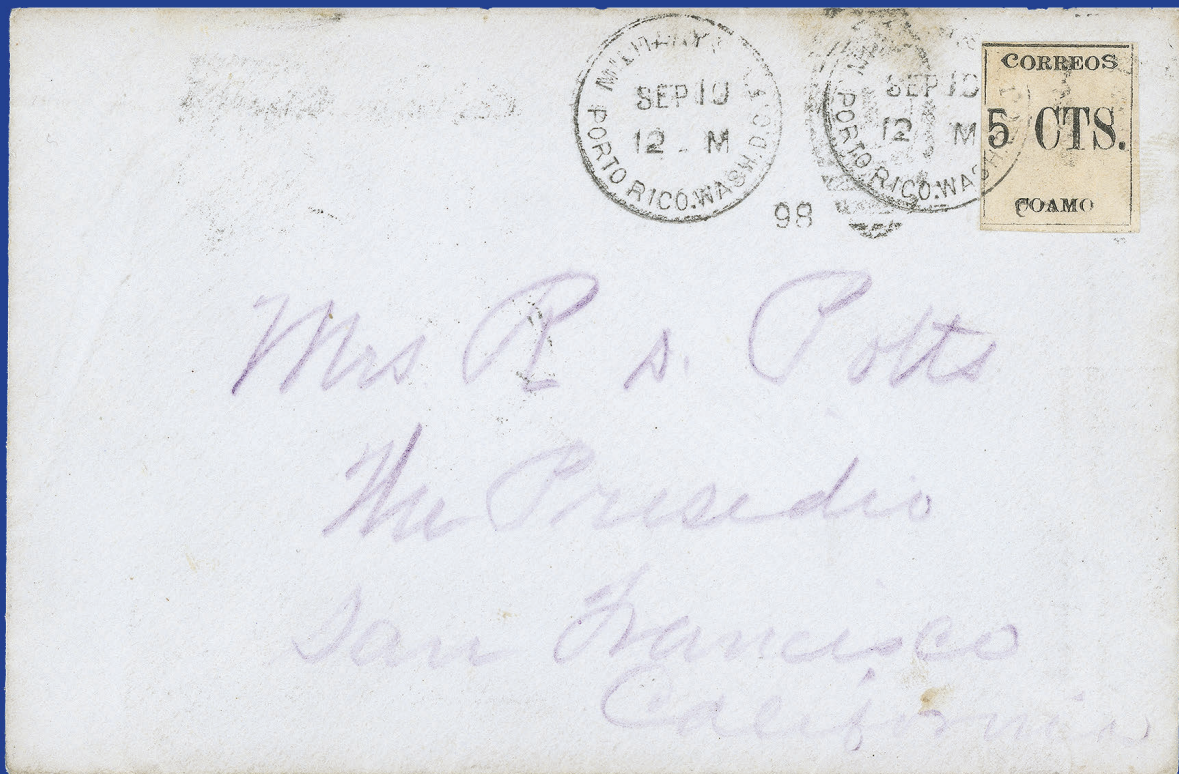 MILITARY
SEP 10
12 M
PORTO RICO. WASH. D.C.
SEP 10
12 M
PORTO RICO. WASH
98
CORREOS
5 CTS.
COAMO
Mrs R s. Potts
The Presidio
San Francisco
California